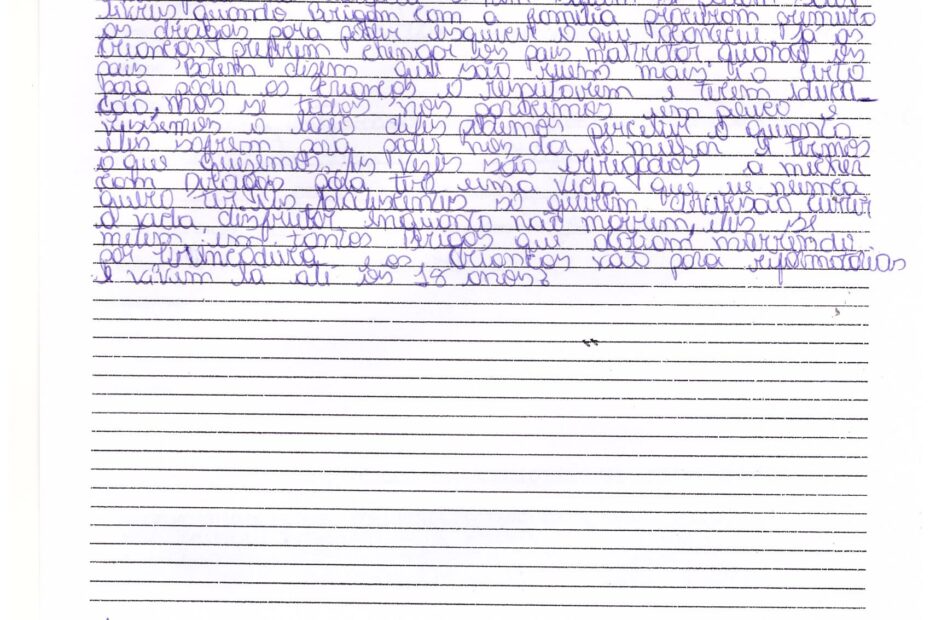 quando brigam com a familia procuram primeiro
as drogas para poder esquecer o que aconteceu ja as
crianças preferem chingar os pais maltratar, quando os
pais batem dizem que são ruims mais é o certo
para poder as crianças o respeitarem e terem educa
ção, mas se todos nos pararmos um pouco e
o lado deles podemos perceber o quanto
eles sofrem para poder nos dar o melhor e termos
o que quisemos. As vezes são obrigados a mecher
com drogas pela uma vida que nunca
quero ter. se querem curtir
a vida disfrutar enquanto não morrem, eles se
metem em tantas brigas que acabam morrendo
por brincadura e as crianças vão para reformatorias
e vivem la até os 18 anos